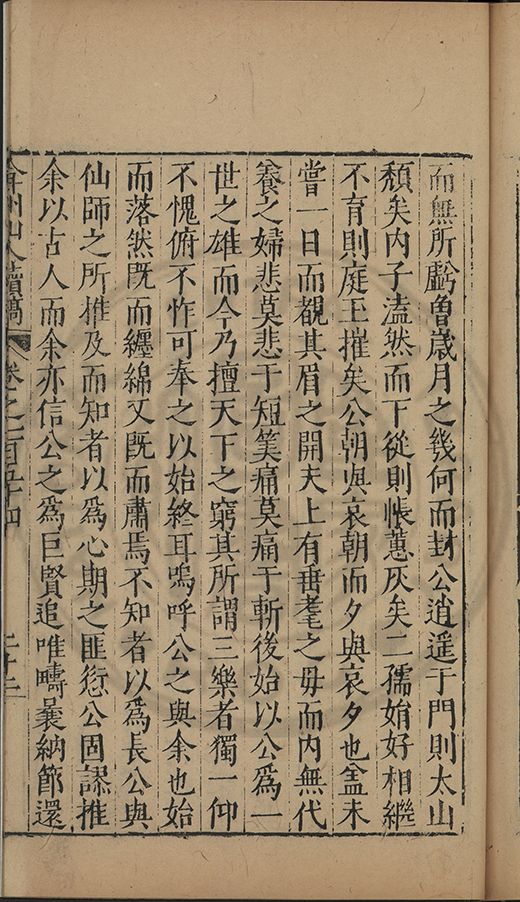 而無所虧曾歲月之幾何而封公逍遥于門則太山
頽矣内子溘然而下從則帳蕙灰矣二孺㛃好相繼
不育則庭玉摧矣公朝與哀朝而夕與哀夕也盍未
嘗一日而覩其眉之開夫上有垂耄之毋而内無代
養之婦悲莫悲于短筭痛莫痛于斬後始以公爲一
世之雄而今乃擅天下之窮其所謂三樂者獨一仰
不愧俯不怍可奉之以始終耳嗚呼公之與余也始
而落然既而纏綿又既而肅焉不知者以爲長公與
仙師之所推及而知者以爲心期之匪愆公固謬推
余以古人而余亦信公之爲巨賢追唯疇曩納節還
弇州山人續稿 卷之一百五十四